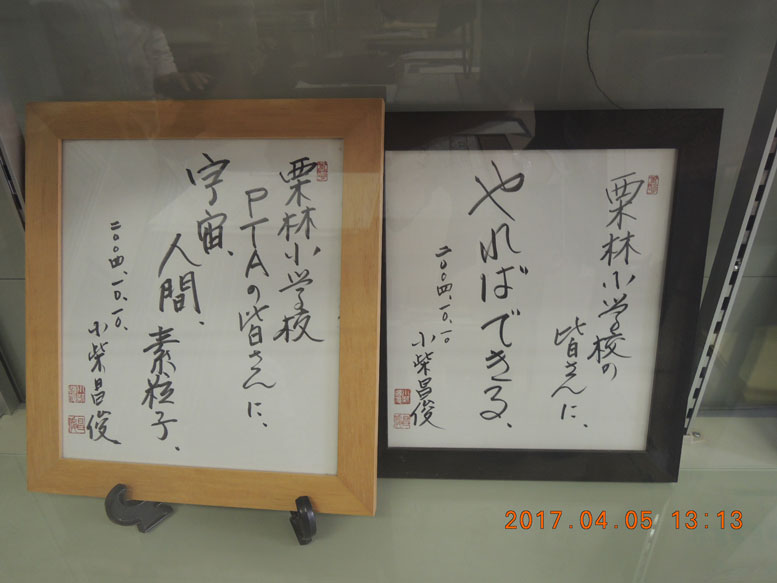 栗林小学校
PTAの皆さんに、
宇宙、
人間、
素粒子、
二〇〇四、一〇、一〇、
小柴昌俊
栗林小学校の
皆さんに、
やればできる、
二〇〇四、一〇、一〇
小柴昌俊
2017.04.05 13:13